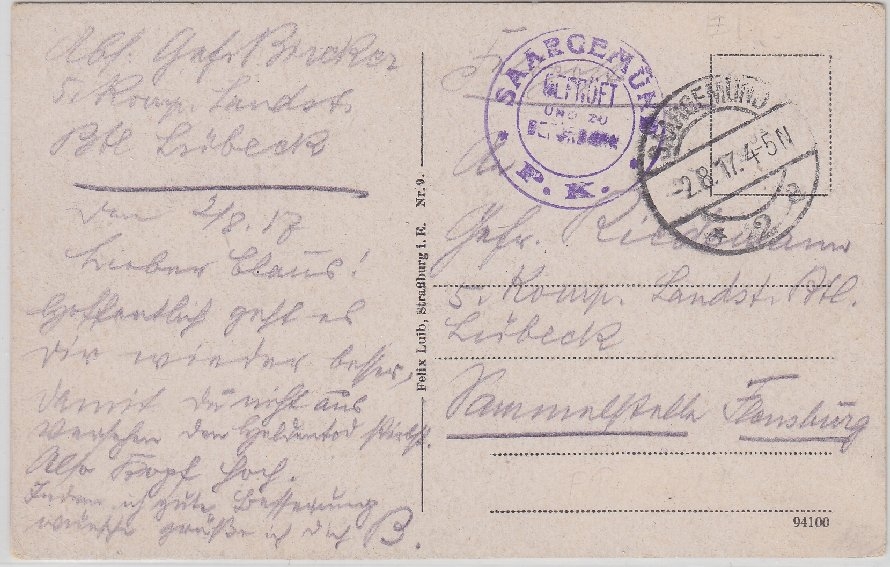 Abs. Gefr.
5. Komp. Landst.
Btl Lübeck
den 2/8. 17
Lieber Claus!
Hoffentlich geht es
Dir wieder besser,
damit Du nicht aus
Versehen den Heldentod stirbst.
Also Kopf hoch.
Indem ich gute Besserung
wünsche grüße ich Dich B.
Felix Luib, Straßburg i. E. Nr. 9.
SAARGEMÜND
GEPRÜFT
UND ZU
P. K.
SAARGEMÜND
-2.8.17.4-5N
* 2 a
An
Gefr.
5. Komp. Landst. Btl.
Lübeck
Sammelstelle Flensburg
94100